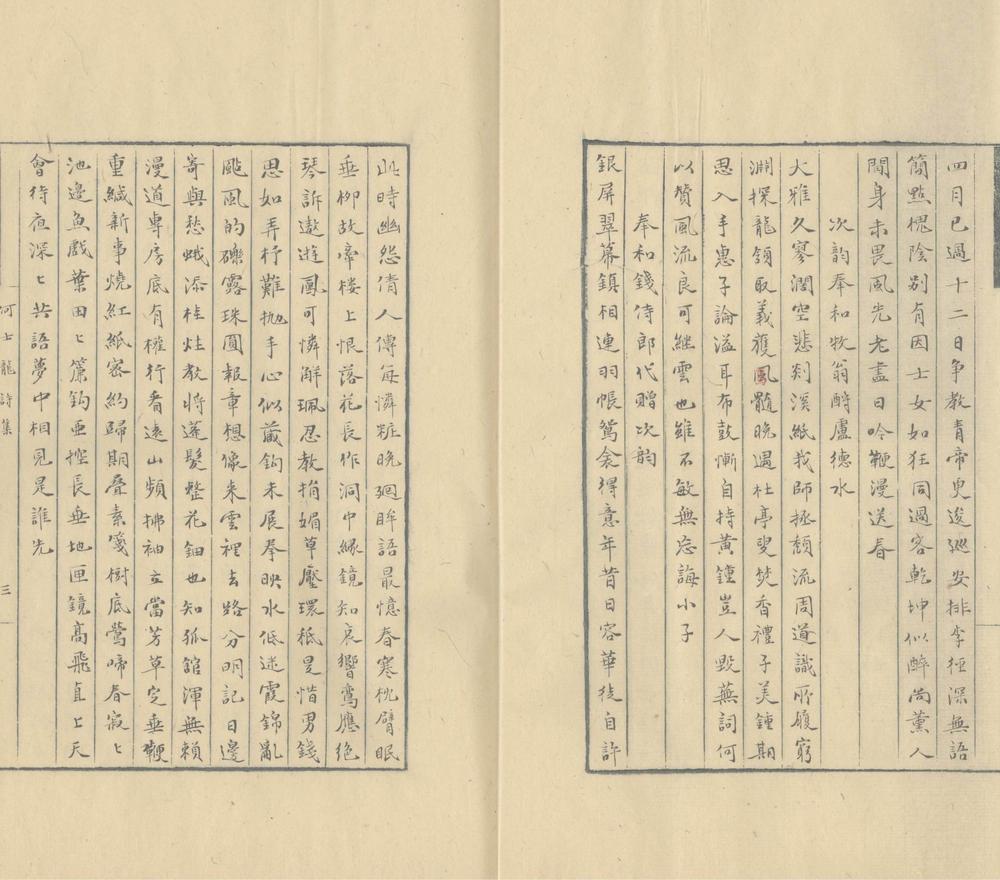 四月已過十二日爭教青帝叟逡巡安排李徑深無語
簡點槐陰別有因士女如狂同過客乾坤似醉尚薰人
閒身未畏風光老盡日吟鞭漫送春
次韵奉和牧翁酧盧德水
大雅久寥濶空悲剡溪紙我師拯頹流周道識所履窮
淵探龍領取義獲鳳髓晚遇杜亭叟焚香禮子美鍾期
思入手惠子論溢耳布鼓慚自持黃鍾豈人毀蕪詞何
以贊風流良可繼雲也雖不敏無忘誨小子
奉和錢侍郎代贈次韵
銀屏翠幕鎮相連羽帳鴛衾得意年昔日容華徒自許
此時幽怨倩人傳每憐粧晚廻眸語最憶春寒枕臂眠
垂柳故牽樓上恨落花長作洞中緣鏡知哀響鸞應絕
琴訴遨遊鳳可憐解珮忍教捐媚草壓環秪是惜男錢
思如弄杼難抛手心似藏鈎未展拳映水低迷霞錦亂
颭風的礫露珠圓報章想像来雲裡去路分明記日邊
寄與愁蛾添桂炷教將蓬髮整花鈿也知孤館渾無賴
漫道專房底有權行看遠山頻拂袖立當芳草定垂鞭
重緘新事燒紅紙密約歸期疊素箋樹底鶯啼春寂〻
池邊魚戲葉田〻簾鈎亜控長垂地匣鏡高飛直上天
會待夜深〻共語夢中相見是誰先
何士龍詩集
三